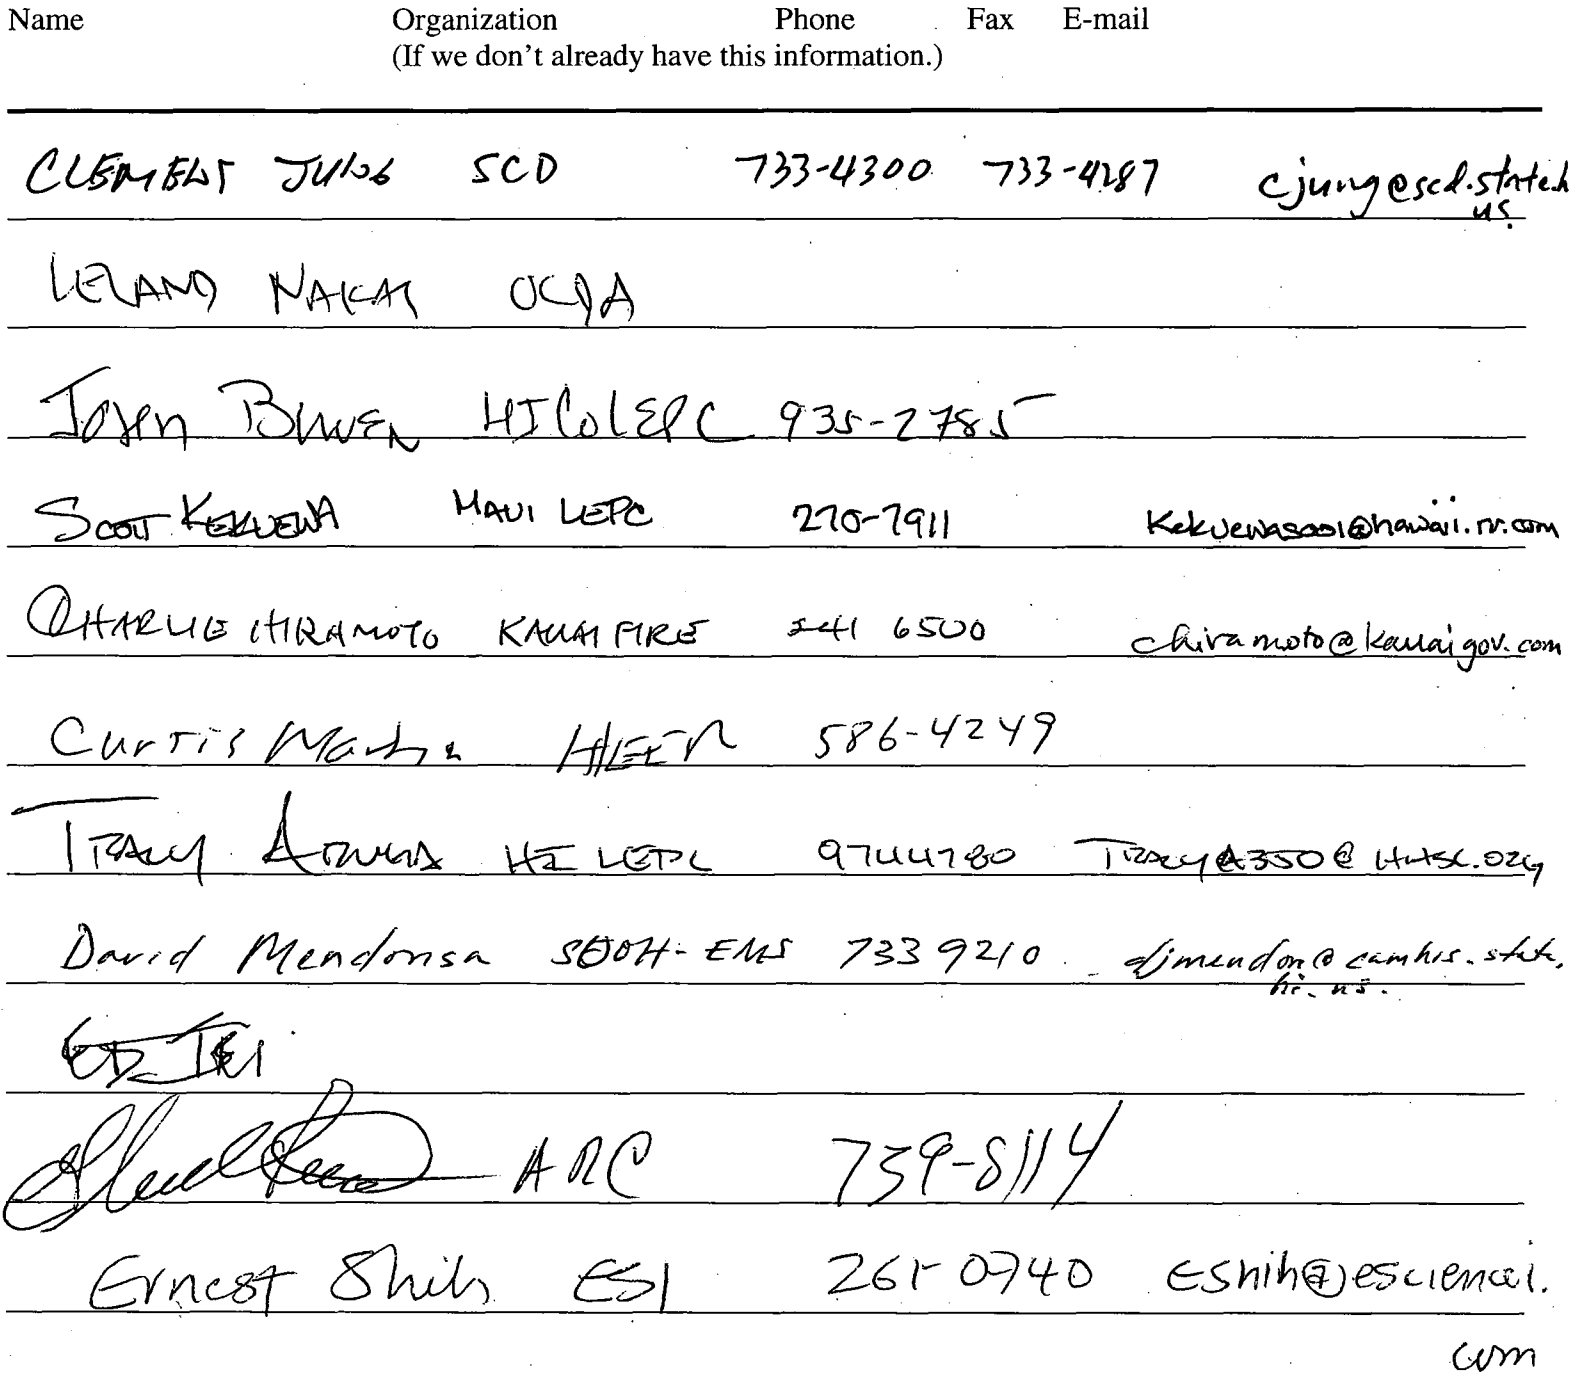 Name Organization Phone Fax E-mail
(If we don't already have this information.)
CLEMENT JUNG SCD 733-4300 733-4287 cjung@scd.state.h
us.
LELAND NAKAI OCDA
JOHN BOWEN HI Co LEPC 935-2785
SCOTT KEKUEWA MAUI LEPC 270-7911 Kekuewas001@hawaii.rr.com
CHARLIE HIRAMOTO KAUAI FIRE 241 6500 chiramoto@kauaigov.com
Curtis HEER 586-4249
TRACY HI LEPC 9744780
David Mendonsa SDOH-EMS 733 9210 djmendon@camhis.state.
hi.us.
ED
ARC 739-8114
Ernest Shih ESI 261-0740 Eshih@esciencei.
com